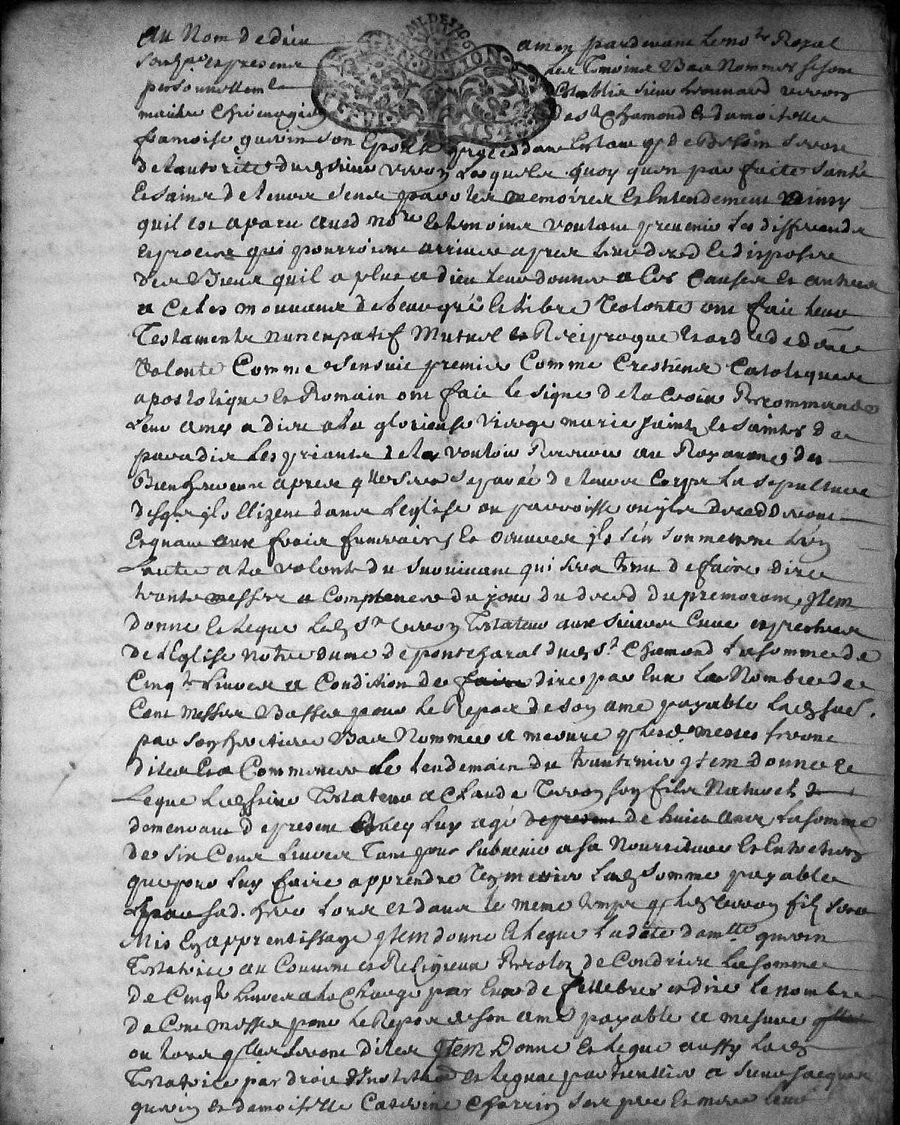 Au Nom de dieu amen pardevant le no.re Royal
Soub.ne et en presence des temoins Bas Nommes se sont
personnellem.t Establis sieur
maitre Chirurgien de S.t Chamond et damoiselle
francoise guerin son Epouse procedant
de lautorité dud sieur Lesquels quoy quen parfaite santé
Et sains de leurs sens parolles memoires Et Entendement Ainsy
quil est aparu aud No.re Et temoins voulant prevenir Les differends
Et proces qui pourroient arriver apres leur deces Et disposer
des Biens quil a plut a dieu leur donner a Ces Causes Et autres
a Ce les mouvans de leur gré Et libre Volonté ont fait leur
Testament nuncupatif Mutuel Et Reciproque Et ordre de derniere
Volonté Comme sensuit premier Comme Crestiens Catoliques
apostolique Et Romain ont fait le signe de la Croix Recommandé
Leur ames a dieu a la glorieuse Vierge marie saints Et saintes de
paradis Les priants de les vouloir Recevoir au Royaume des
Bienheureux apres quelles seront separée de leurs Corps La sepulture
desquels ils Elizent dans LEglise ou parroisse ou ils decedderont
Et quant aux fraix funeraires Et oeuvres pies sen sont remis Lun
Lautre a la volonté du survivant qui sera tenu de faire dire
trente messes a Commencer du jour du deced du premourant, Item
donne Et legue Led S.r testateur aux sieurs Curé et prestres
de LEglise Notre dame de dud S.t Chamond La somme de
Cinq.te Livres a Condition de faire dire par Eux Le Nombre de
Cent Messes Basses pour Le Repos de son ame payable Lad so.e
par son heritiere Bas Nommée a mesure q lesd. messes seront
dites Et a Commencer Le lendemain du Item donne Et
Legue Led sieur Testateur a Claude son fils Naturel
demeurant de present Chez Luy agé de huit ans La somme
de Six Cens Livres Tant pour subvenir a sa Nourriture Et Entretien
que pour Luy faire apprendre Un metier Lad Somme payable
par sad. here Lors et dans le meme temps q Led fils sera
Mis En apprentissage Item donne Et Legue Ladite dam.lle guerin
Testatrice au Couvent et Religieux de Condrieu La somme
de Cinq.te Livres a la Charge par Eux de Cellebrer et dire le nombre
de Cent messes pour Le Repos de son ame payable a mesure
ou Lors q.lles seront dites Item Donne Et Legue aussy Lad
Testatrice par droit dInstitution et Legat particulier a Sieur Jacques
guerin et damoiselle Caterine ses pere Et mere